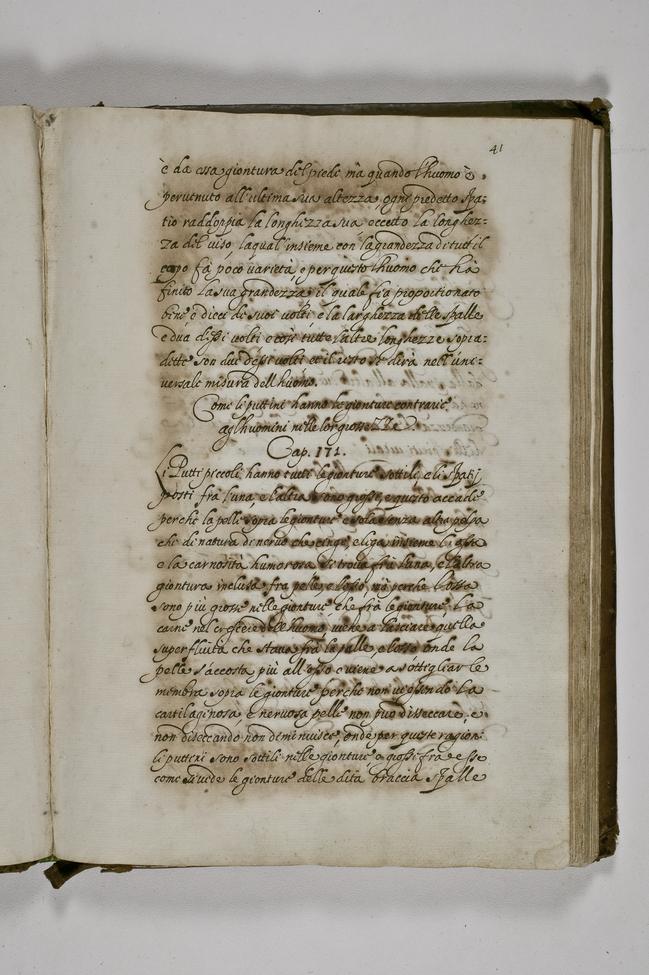 41
è da essa giontura del piede ma quando l'huomo è
peruenuto all'ultima sua altezza, ogni predetto spa-
tio raddoppia la longhezza sua eccetto la longhez-
za del uiso, laqual'insieme con la grandezza di tutt'il
capo fà poco uarietà, e per questo l'huomo che hà
finito la sua grandezza, il quale sia proportionato
bene è dieci de suoi uolti e la larghezza delle spalle
è dua d'essi uolti e così tutte l'altre longhezze sopra-
dette son due d'essi uolti et il resto se dirà nell'uni-
uersale misura dell'huomo.
Come li puttini hanno le gionture contrarie
agl'huomini nelle lor grossezze
Cap. 171.
Li Putti piccoli hanno tutte le gionture sottili, e li spatij
posti frà l'una, e l'altra sono grossi, e questo accade
perche la pelle sopra le gionture e sola senza altra polpa
che di natura di neruo che cinge, e liga insieme li ossa
e la carnosità humorosa si troua frà l'una, e l'altra
giontura inclusa fra pelle, e l'osso, mà perche l'ossa
sono più grosse nelle gionture, che frà le gionture, La
carne nel crescere dell'huomo, uiene a lasciare quella
superfluità che staua frà la pelle, e l'osso onde la
pelle s'accosta più all'osso e uiene a sottigliar le
membra sopra le gionture perche non ui essendo La
cartilaginosa, e neruosa pelle non può disseccare, e
non diseccando non deminuisce, onde per queste ragioni
li puttini sono sottili nelle gionture e grossi fra esse
come si uede le gionture delle dita braccia spalle